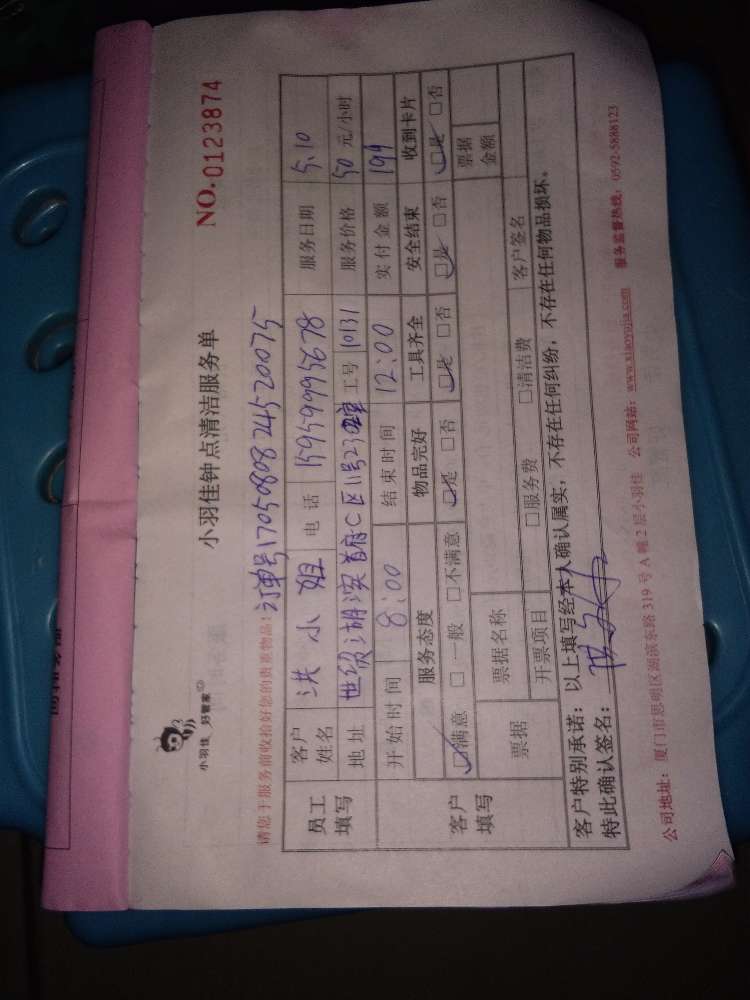 小羽佳 好管家
小羽佳钟点清洁服务单
NO.0123874
请您于服务前收拾好您的贵重物品！订单号1705080824520075
员工填写 客户姓名 洪小姐 电话 15959995678 服务日期 5.10
地址 世级湖滨首府C区11号23 工号 10131 服务价格 50 元/小时
客户填写 开始时间 8:00 结束时间 12:00 实付金额 199
服务态度 物品完好 工具齐全 安全结束 收到卡片
☑满意 □一般 □不满意 ☑是 □否 ☑是 □否 ☑是 □否 ☑是 □否
票据 票据名称 票据金额
开票项目 □服务费 □清洁费 客户签名
客户特别承诺：以上填写经本人确认属实，不存在任何纠纷，不存在任何物品损坏。
特此确认签名：
公司地址：厦门市思明区湖滨东路319号A幢2层小羽佳 公司网站：www.xiaoyujia.com 服务监督热线：0592-5888123